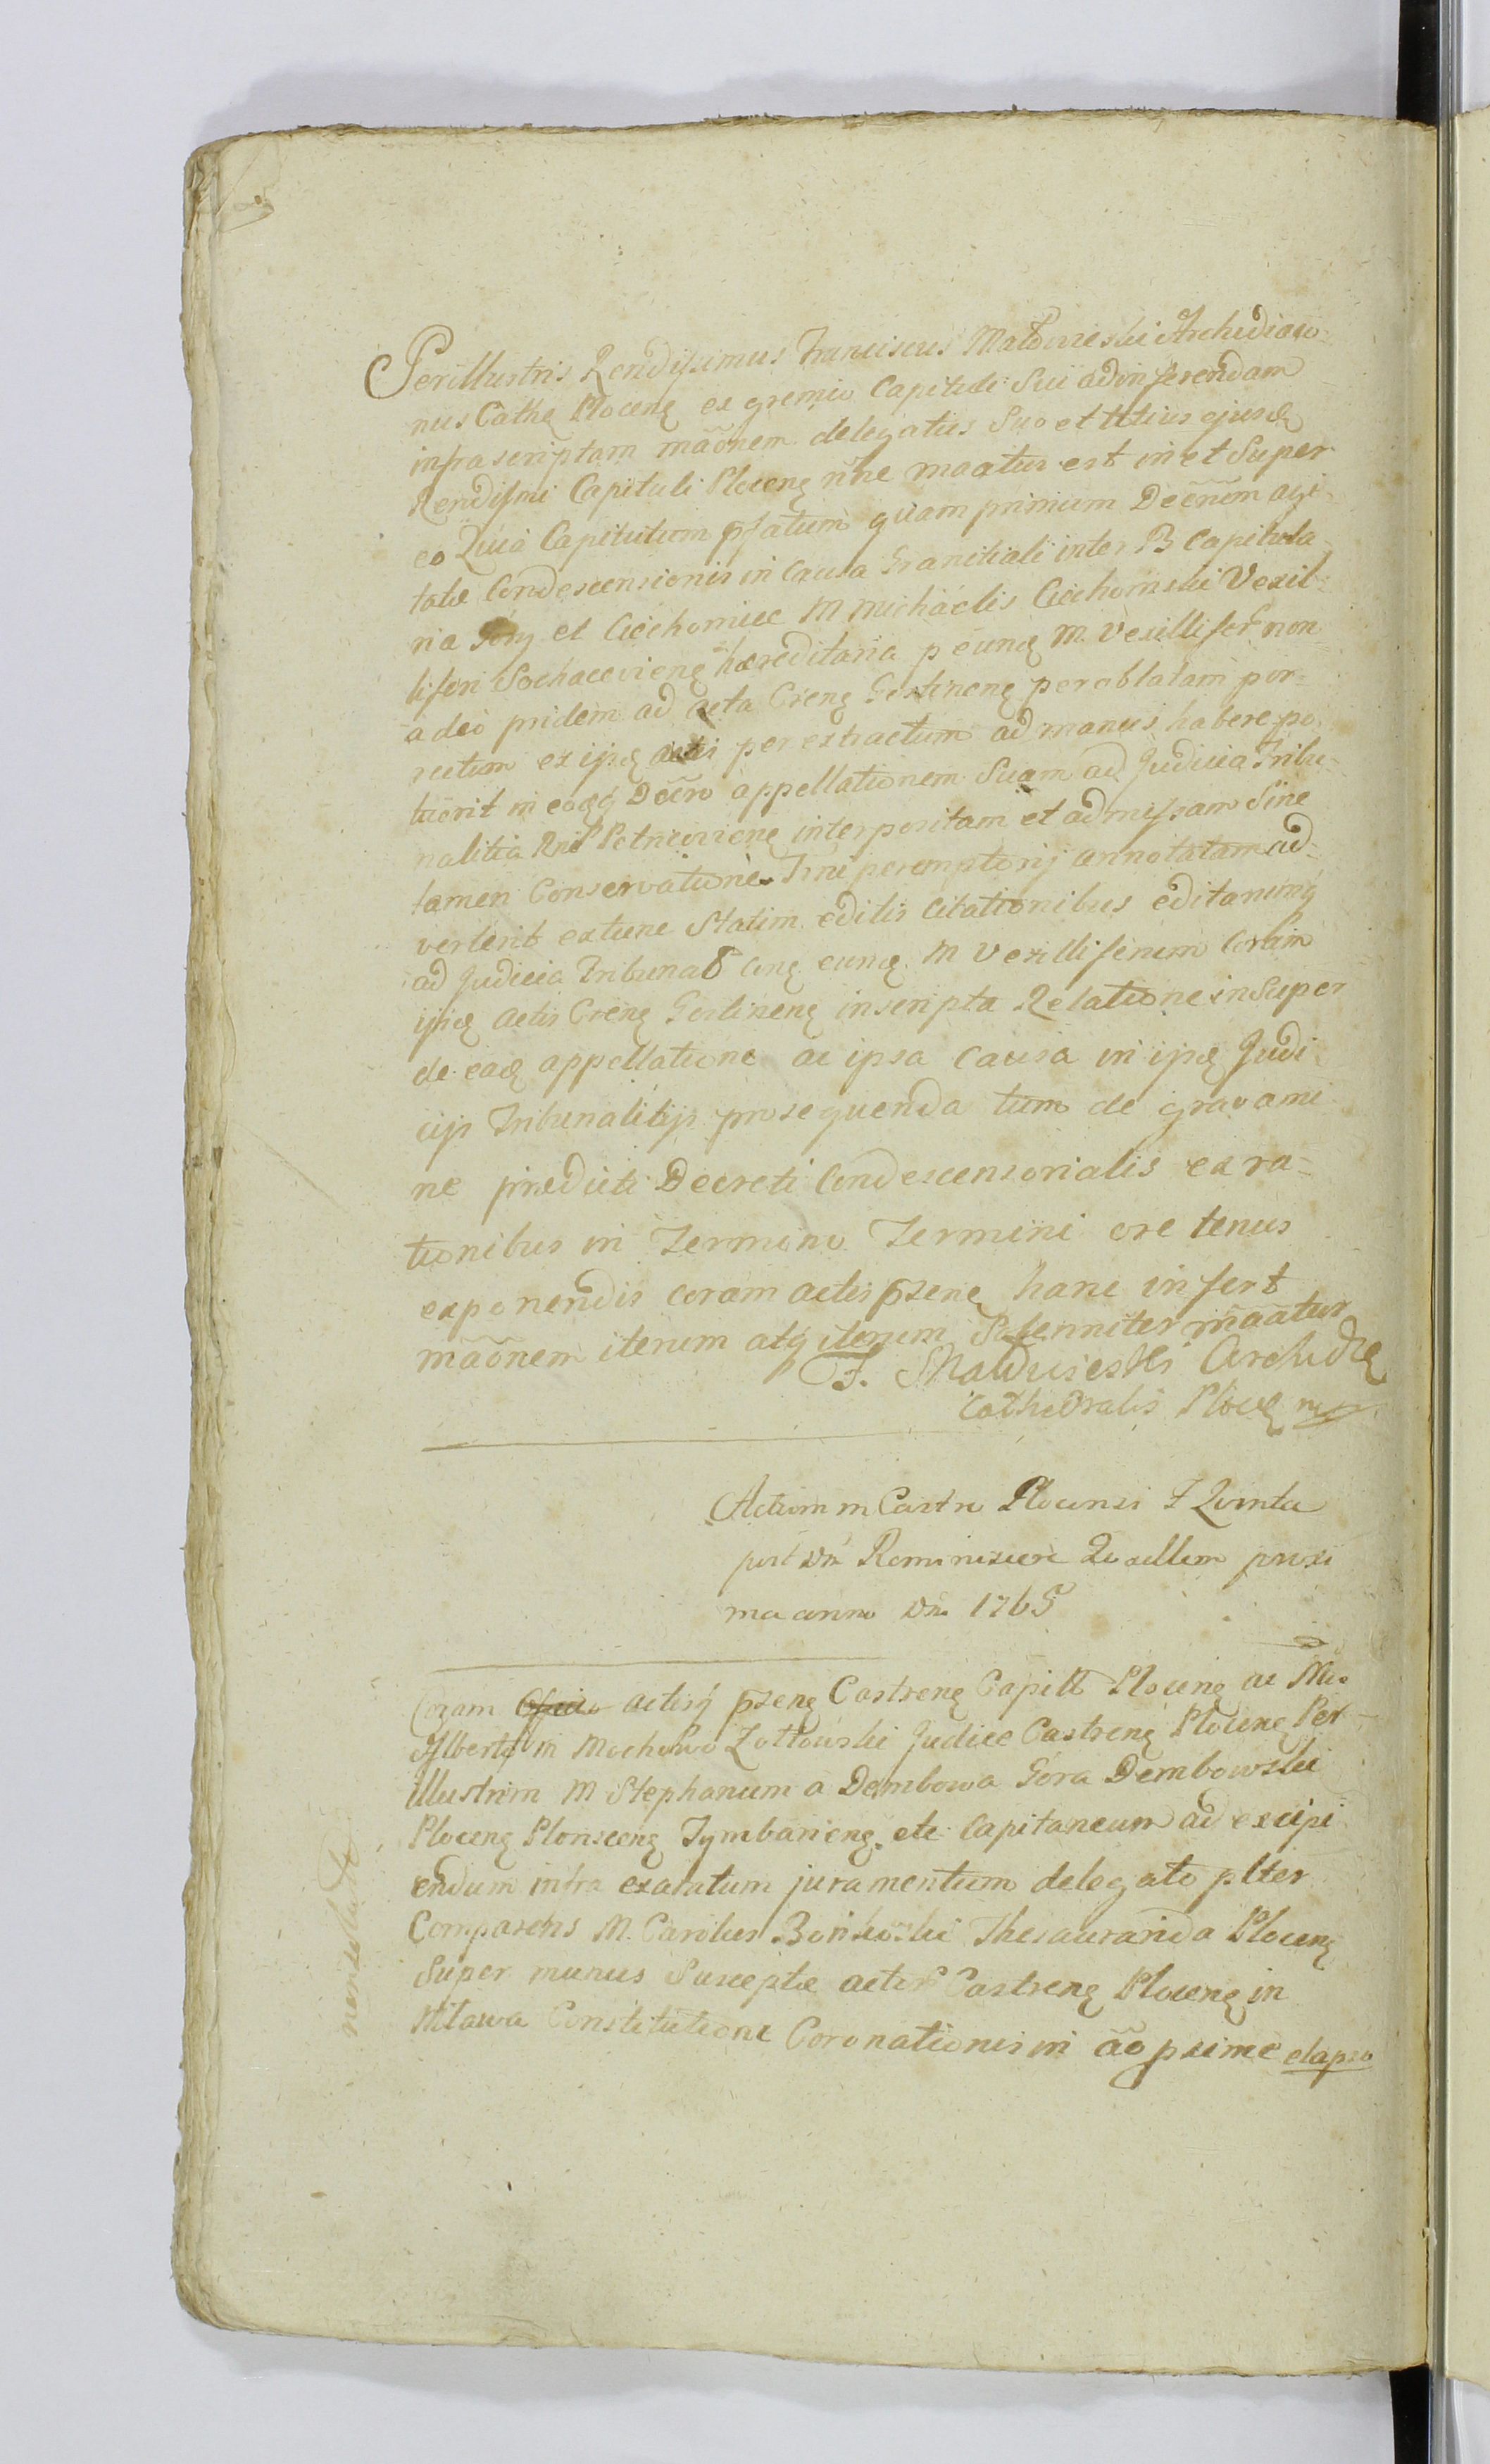 Perillustris Rendissimus Franciscus Małowieski Archidiaco-
nus Cathę Plocenę ex gremio Capituli Sui ad inferendam
infrascriptam mãõnem delegatus Suo et totius ejusdę
Rendissmi Capituli Plocenę nñe maatus est in et Super
eo Quia Capitulum pfatum quam primum Decñum agi
tatae Condescensionis in Causa Granitiali inter B Capitula
ria Góry et Ciechomice M Michaelis Ciechomski Vexil-
liferi Sochacevienę hæreditaria p eundę M. Vexillifer non
adeo pridem ad acta Crenę Gostinenę per oblatam por-
rectum ex ipsę actis per extractum ad manus habere po
tuerit in eoqę Decro appellationem Suam ad Judicia Tribu-
nalitia Petricovienę interpositam et admissam Sine
tamen Conservatione Trni peremptorij annotatam ad-
verterit extunc Statim editis Citationibus editarumq
ad Judicia Tribunal conę eundę M Vexilliferum Coram
ipsię actis Crenę Gostinenę inscripta Relatione inSuper
de eadę appellatione ac ipsa Causa in ipsę Judi
cijs Tribunalitijs prosequenda tum de gravami
ne prædicti Decreti Condescensorialis ex ra-
tionibus in Termino Termini ore tenus
exponendis coram actis pzenę hanc infert
mãõnem iterum atq iterum Solenniter mãatur
F. Małowieski Archidię
Cathedralis Plocę mp
Actum in Castro Plocensi F Quinta
post Dñ Reminiscere Quadllem proxi
ma anno Dn 1765
Coram Officio actisq pzenę Castrenę Capitl Plocenę ac Mco
Alberto in Mochowo Zołtowski Judice Castrenę Plocenę Per
illustrem M Stephanum a Dembowa Góra Dembowski
Plocenę Plonscenę Tymbarienę etc Capitaneum ad excipi
endum infra exaratum juramentum delegato plter
Comparens M. Carolus Bońkoski Thesauranida Plocenę
Super munus Susceptae actor Castrenę Plocenę in
Mlawa Constitutione Coronationis in ão pximè elapso